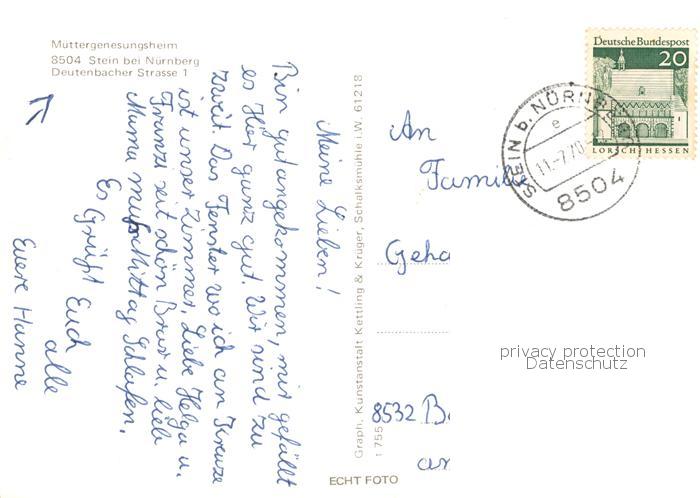 Müttergenesungsheim
8504 Stein bei Nürnberg
Deutenbacher Strasse 1
Meine Lieben!
Bin gut angekommen, mir gefällt
es hier ganz gut. Wir sind zu
zweit. Das Fenster wo ich an Kreuze
ist unser Zimmer. Liebe Helga u.
Franzi seit schön Brav u. lieb
Mama muß Mittag Schlafen.
Es Grüßt Euch
alle
Euere Hanne
Graph. Kunstanstalt Kettling & Krüger, Schalksmühle i.W. 61218
1 755
ECHT FOTO
Deutsche Bundespost
20
LORSCH/HESSEN
STEIN b. NÜRNBERG
e
11.-7.70
8504
An
Familie
Geha
8532 B
an
privacy protection
Datenschutz